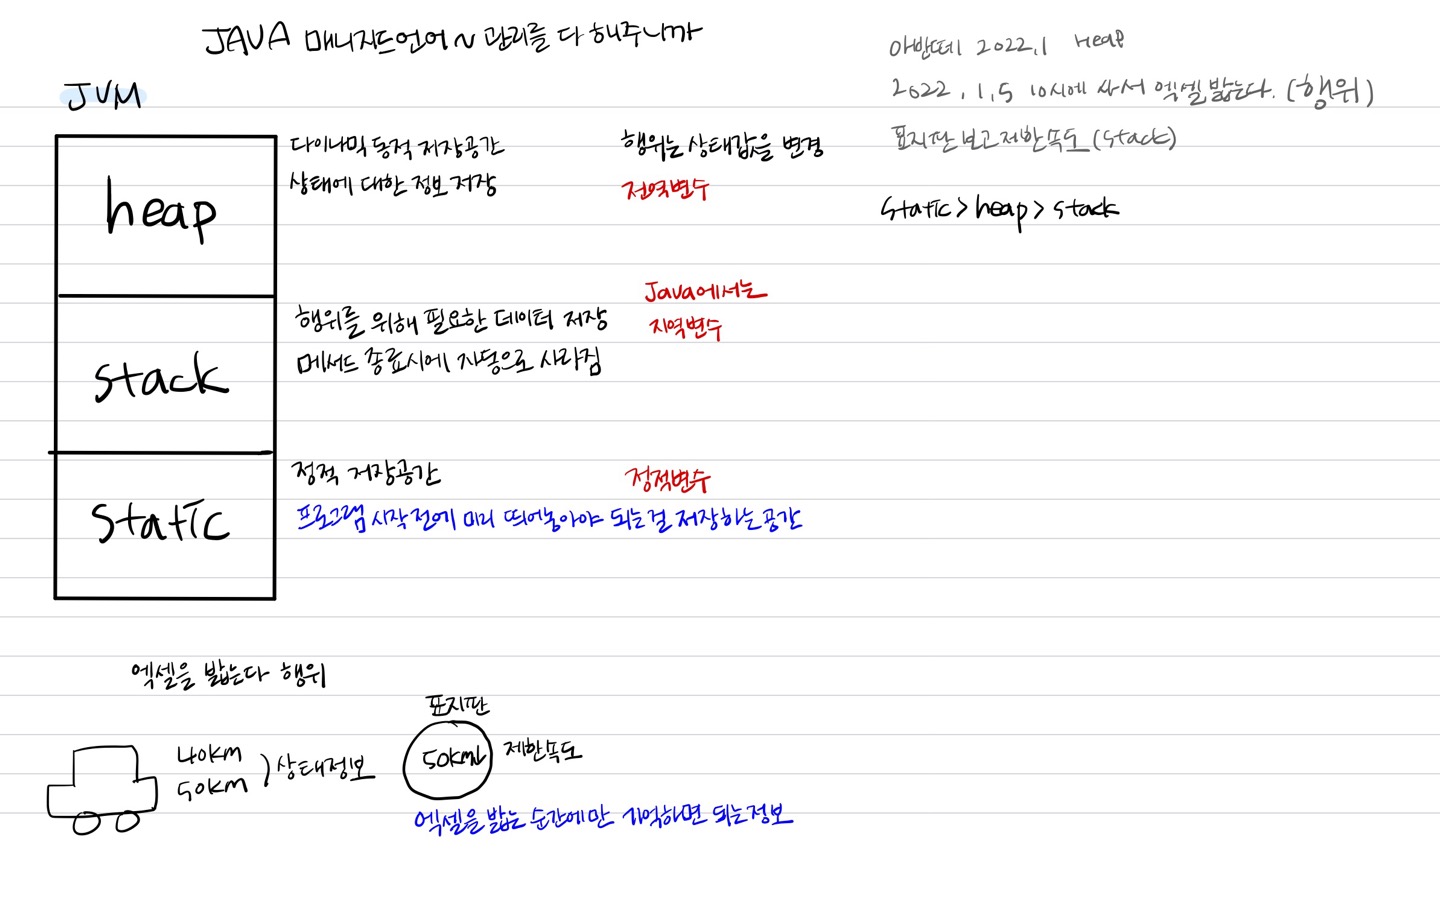 JAVA 매니지드언어 ~ 관리를 다 해주니까
JVM
heap
다이나믹 동적 저장공간
상태에 대한 정보 저장
행위는 상태값을 변경
전역변수
stack
행위를 위해 필요한 데이터 저장
메서드 종료시에 자동으로 사라짐
Java에서는
지역변수
static
정적 저장공간
정적변수
프로그램 시작전에 미리 띄어놓아야 되는걸 저장하는공간
아반떼 2022.1 heap
2022.1.5 10시에 사서 엑셀 밟는다. (행위)
표지판 보고 제한속도 (stack)
static > heap > stack
엑셀을 밟는다 행위
40km
50km
) 상태정보
표지판
50km
제한속도
엑셀을 밟는 순간에만 기억하면 되는정보